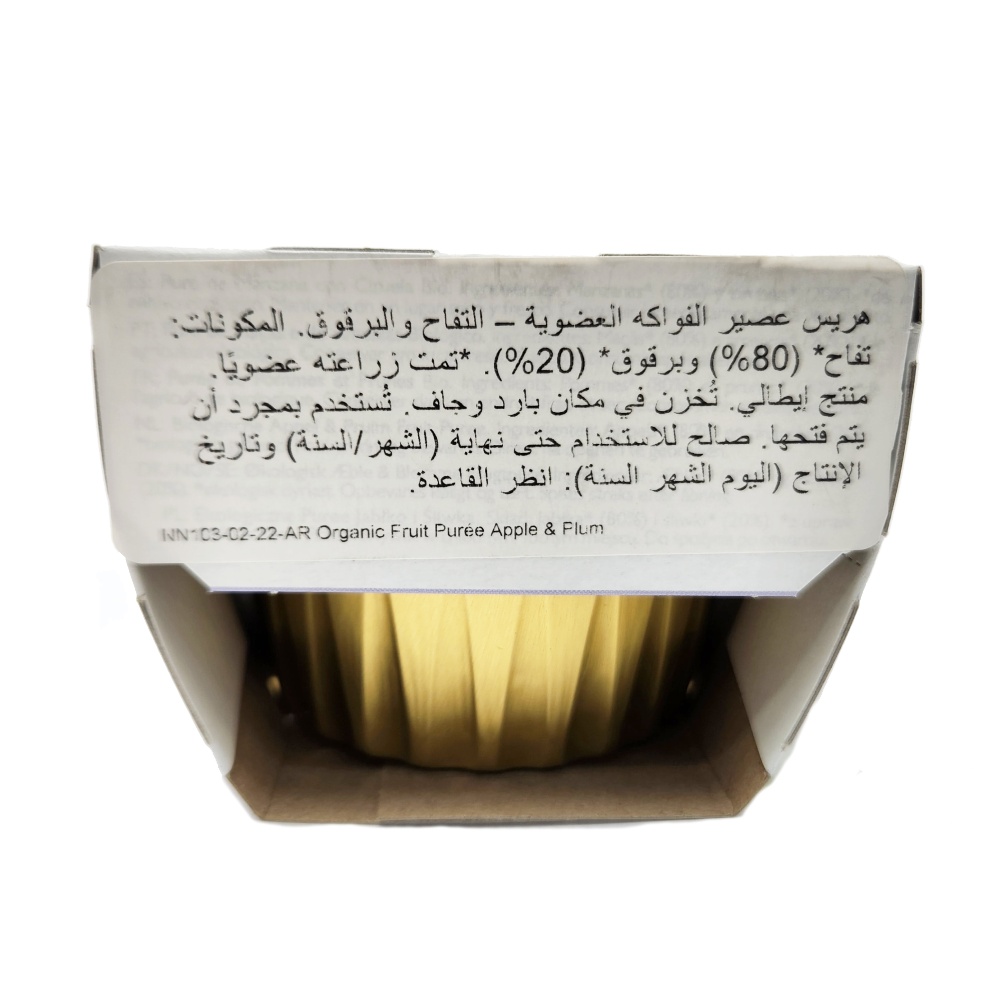 هريس عصير الفواكه العضوية – التفاح والبرقوق. المكونات:
تفاح* (80%) وبرقوق* (20%). *تمت زراعته عضويًا.
منتج إيطالي. تُخزن في مكان بارد وجاف. تُستخدم بمجرد أن
يتم فتحها. صالح للاستخدام حتى نهاية (الشهر/السنة) وتاريخ
الإنتاج (اليوم الشهر السنة): انظر القاعدة.
NN103-02-22-AR Organic Fruit Purée Apple & Plum